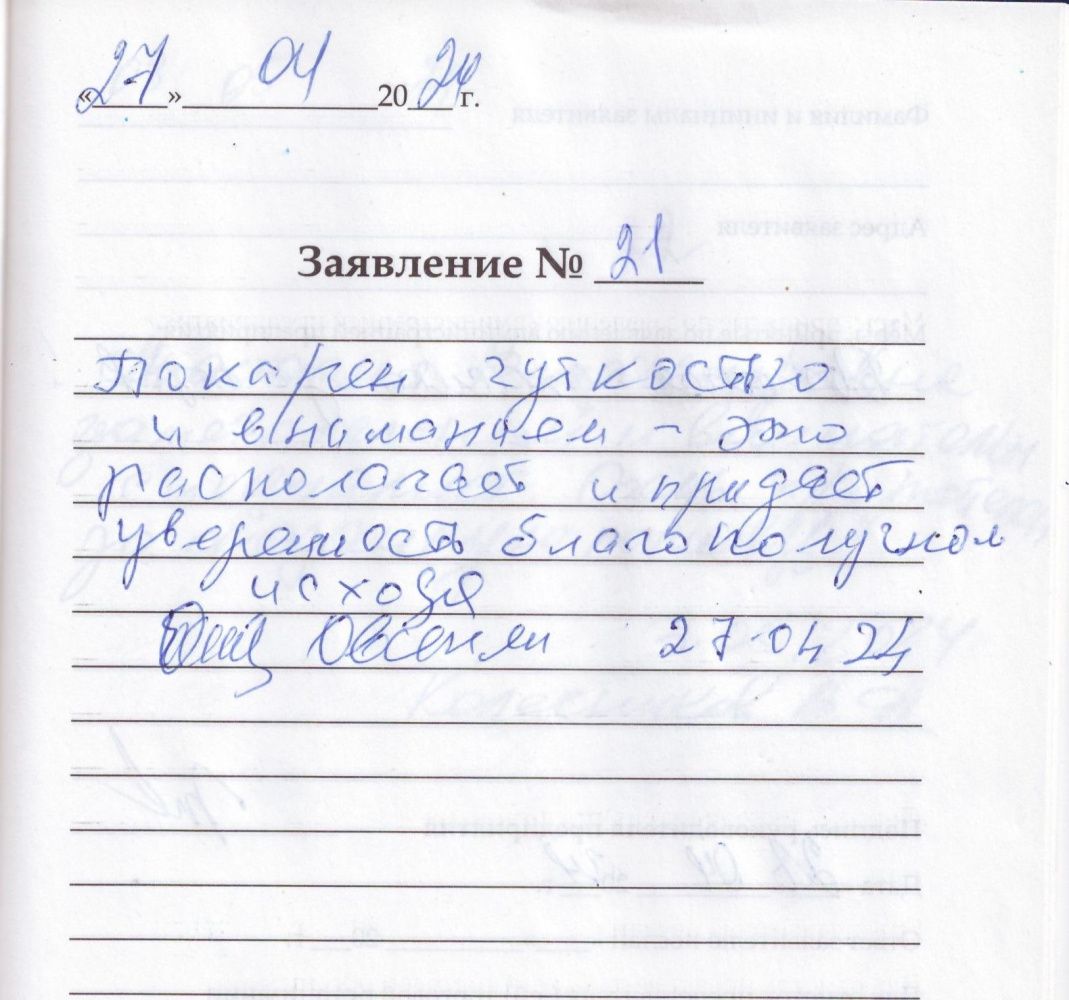 «27» 04 2024 г.
Заявление № 21
Покарен чуткостью
и вниманием - это
располагает и придает
уверенность благополучном
исхода
27.04 24